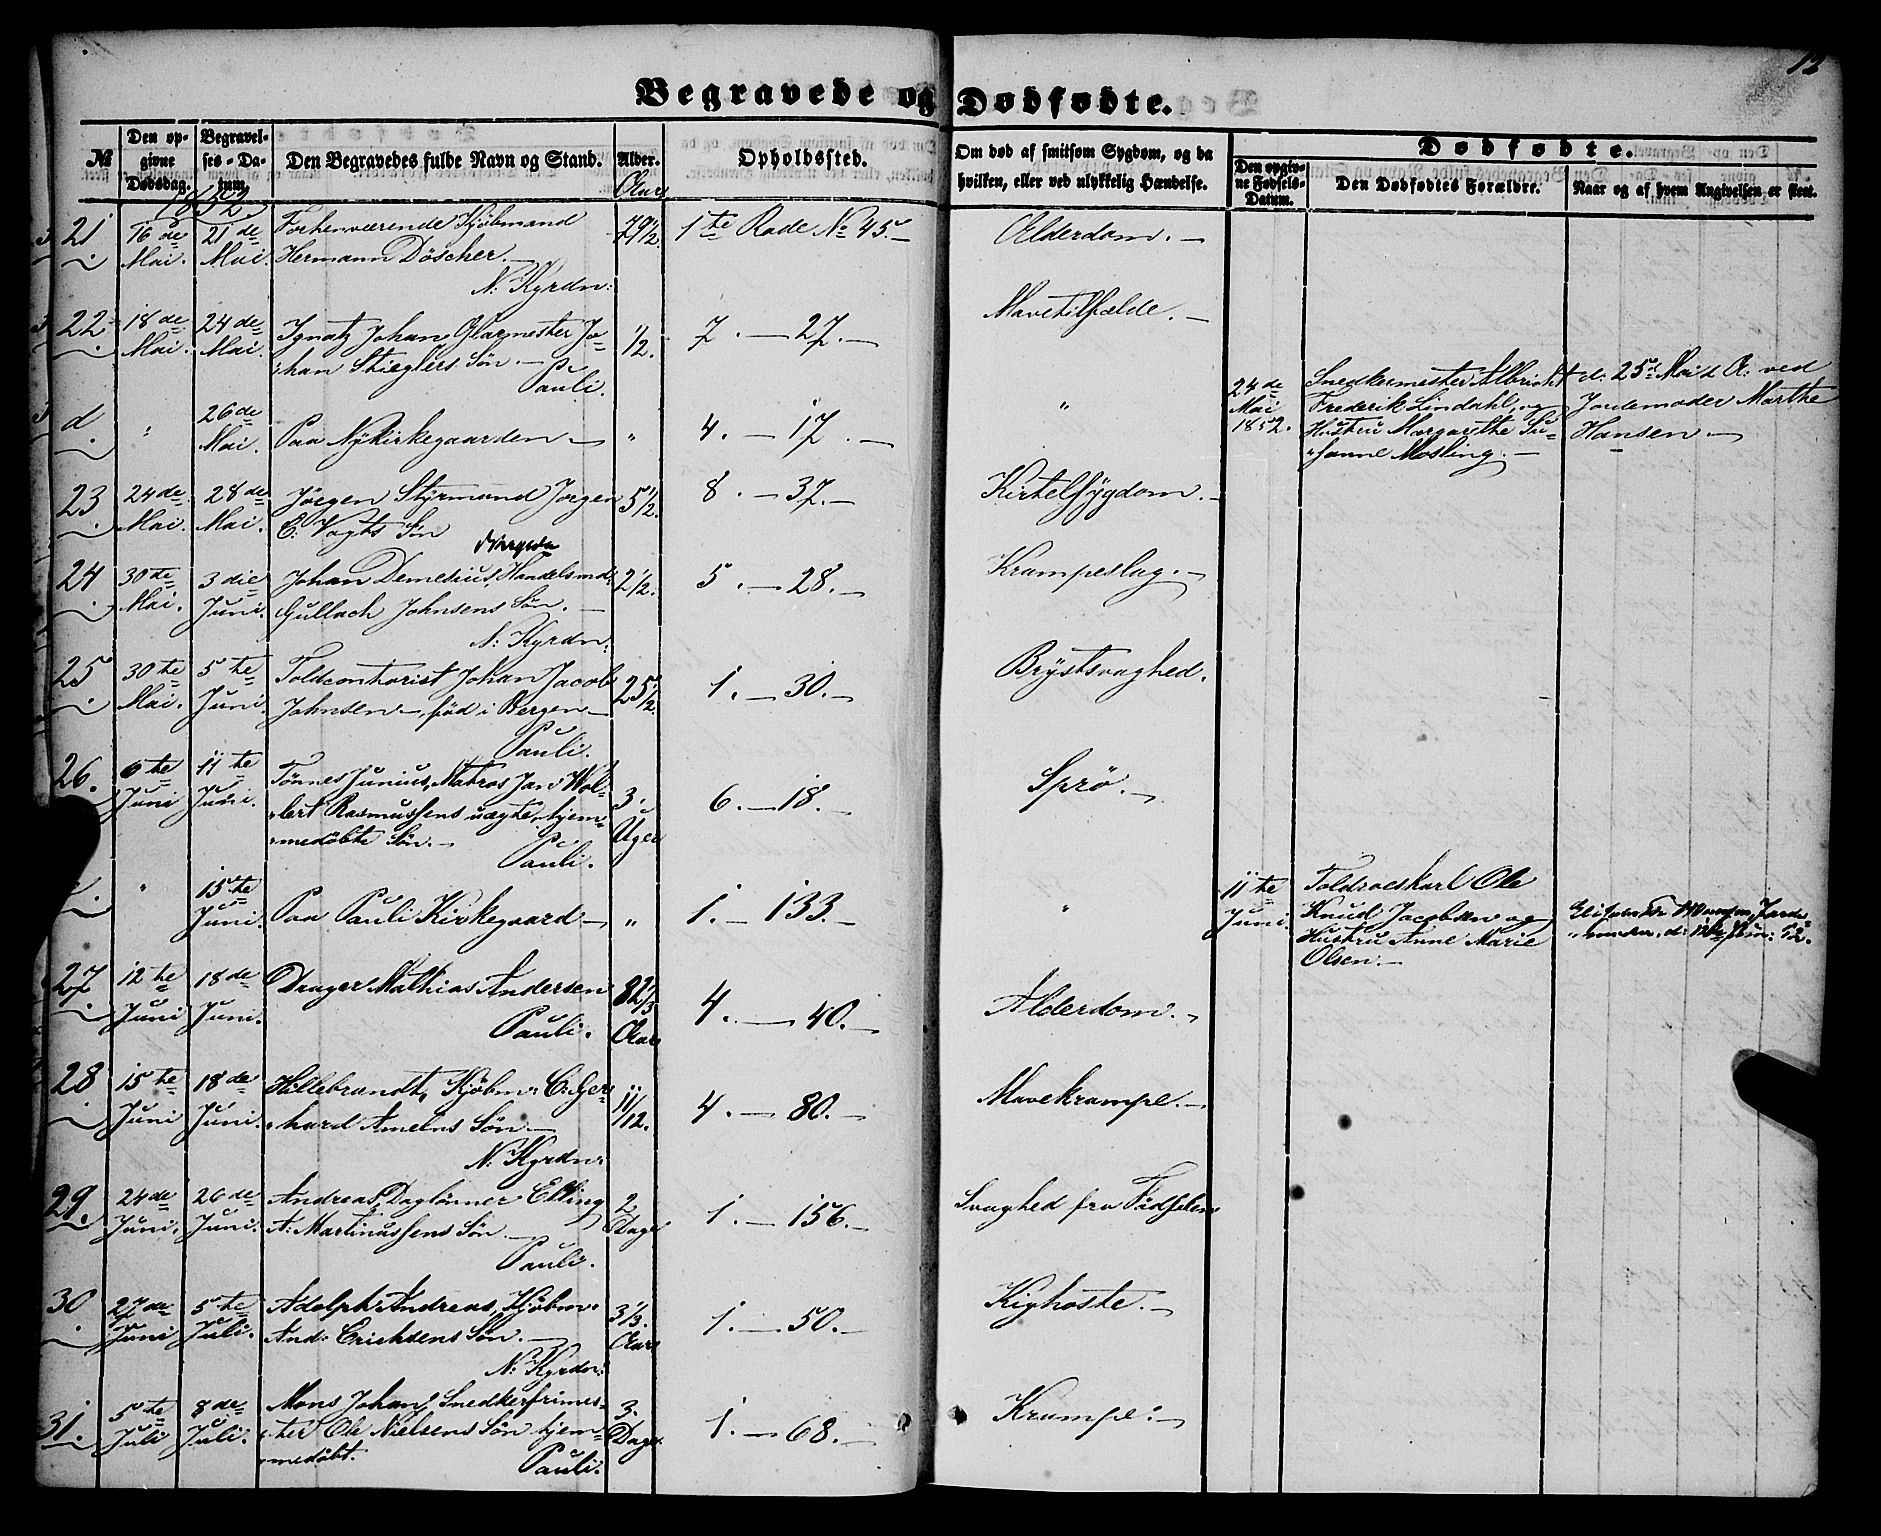 12
Begravede og Dødfødte.
№
Den op-
givne
Dødsdag.
Begravel-
ses-Da-
tum.
Den Begravedes fulde Navn og Stand.
Alder.
Opholdssted.
Om død af smitsom Sygdom, og da
hvilken, eller ved ulykkelig Hændelse.
Dødfødte.
Den opgiv-
ne Fødsels-
Datum.
Den Dødfødtes Forældre.
Naar og af hvem Angivelsen er skeet.
1852.
Aar
21 16de 21de Forhenværende Kjøbmand 79½ 1te Rode No 45.— Alderdom.—
Mai. Mai. Hermann Döscher.—
N: Kgrdn:
22 18de 24de Ignatz Johan, Glarmester Jo- ½. 7.—27.— Mavetilfælde.—
Mai. Mai. han Stieglers Søn.—
Pauli.
d. " 26de Paa Nykirkegaarden— " 4.—17.— " 24de Snedkermester Albricht d: 25de Mai d. A: ved
Mai. Mai Frederik Lindahl, og Jordemoder Marthe
1852. Hustru Margarethe Su- Hansen.—
sanne Mosling.—
23 24de 28de Jörgen Styrmand Jörgen 5½. 8.—37.— Kirtelsygdom.—
Mai. Mai. C: Vogts Søn
24 30te 3die Johan Demetius, Handelsmd: 2½. 5.—28.— Krampeslag.—
Mai. Juni. Gullach Johnsens Søn.—
N: Kgrdn:
25 30te 5te Toldcontorist Johan Jacob 25½. 1.—30.— Brystsvaghed.
Mai. Juni. Johnsen—, fød i Bergen—
Pauli.
26. 6te 11te Tönnes Junius, Matros Jan Wol- 3. 6.—18.— Sprö.—
Juni Juni. lert Rasmussens uægte, hjem- Uger
medøbte Søn.—
Pauli.
" 15te Paa Pauli Kirkegaard— " 1.—133.— " 11te Toldroeskarl Ole
Juni. Juni. Knud Jacobsen og
Hustru Anne Marie
Olsen.—
27 12te 18de Drager Mathias Andersen 82⅓ 4.—40.— Alderdom.—
Juni Juni. Pauli. Aar
28 15te 18de Hillebrandt, Kjøbm: C: Ger- 11/12. 4.—80.— Mavekrampe.—
Juni Juni. hard Amelns Søn.—
N: Kgrdn:
29. 24de 26de Andreas, Daglönner Elling 2 1.—156.— Svaghed fra Fødselen
Juni. Juni. A: Martinussens Søn.— Dage
Pauli.
30 27de 5te Adolph Andreas, Kjøbm: 3⅓. 1.—50.— Kighoste.—
Juni Juli. And: Erichsens Søn.— Aar
N: Kgrdn:
31. 5te 8de Mons Johan, Snedkerfrimes- 3. 1.—68.— Krampe.—
Juli Juli. ter Ole Nielsens Søn, hjem- Dage
medøbt.
Pauli.